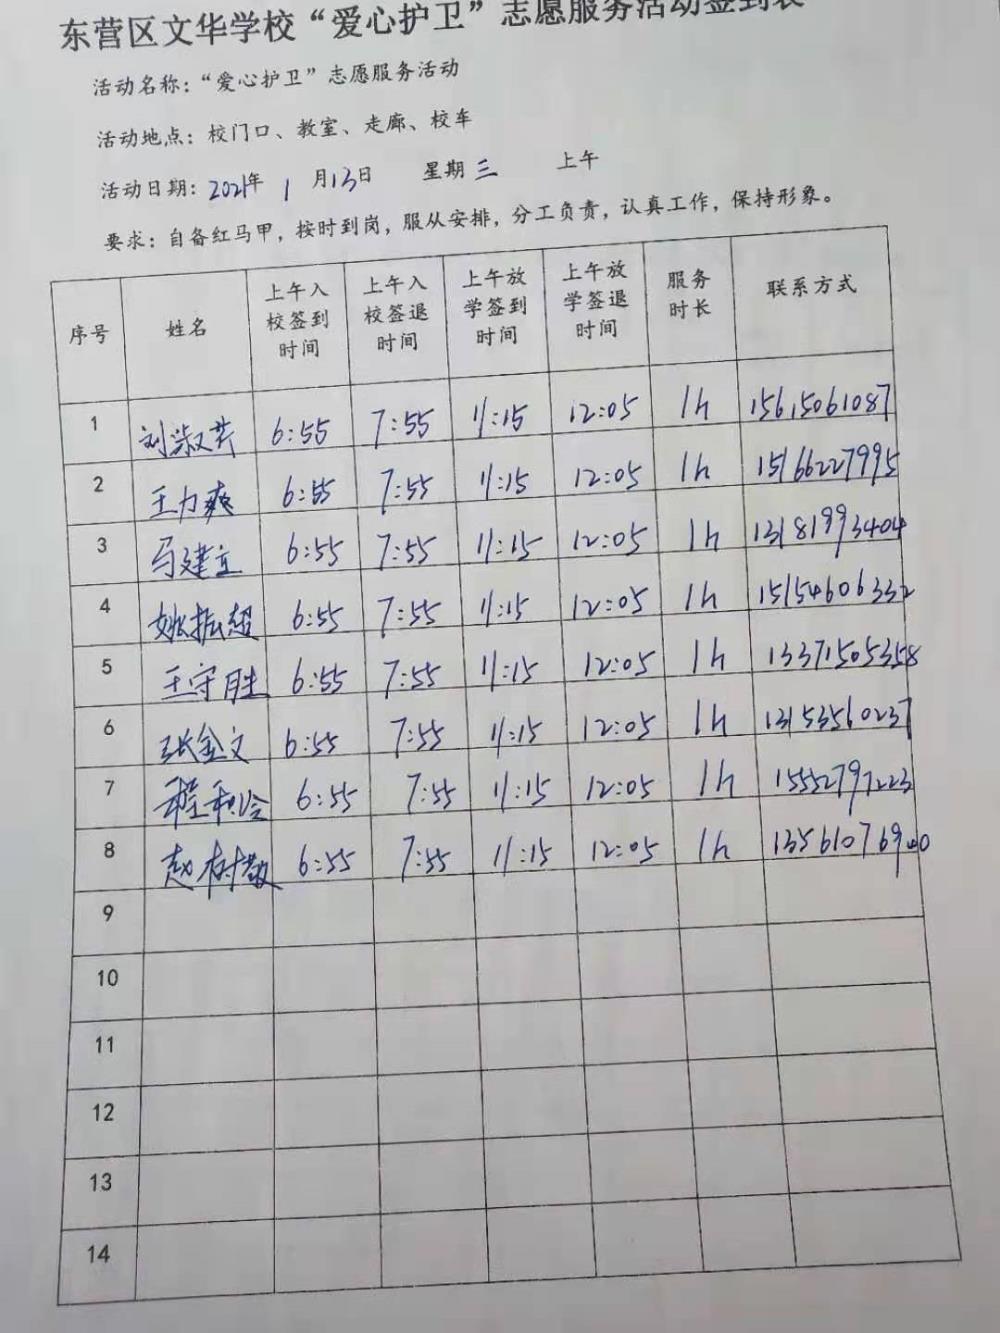 东营区文华学校“爱心护卫”志愿服务活动签到表
活动名称：“爱心护卫”志愿服务活动
活动地点：校门口、教室、走廊、校车
活动日期：2021年 1 月13日 星期三 上午
要求：自备红马甲，按时到岗，服从安排，分工负责，认真工作，保持形象。
序号 姓名 上午入校签到时间 上午入校签退时间 上午放学签到时间 上午放学签退时间 服务时长 联系方式
1 刘淑芹 6:55 7:55 11:15 12:05 1h 15615061087
2 王力爽 6:55 7:55 11:15 12:05 1h 15166227995
3 马建立 6:55 7:55 11:15 12:05 1h 13181993404
4 姚振超 6:55 7:55 11:15 12:05 1h 15154606332
5 王守胜 6:55 7:55 11:15 12:05 1h 13371505358
6 张金文 6:55 7:55 11:15 12:05 1h 13153560237
7 6:55 7:55 11:15 12:05 1h 15552797223
8 赵树敬 6:55 7:55 11:15 12:05 1h
9
10
11
12
13
14